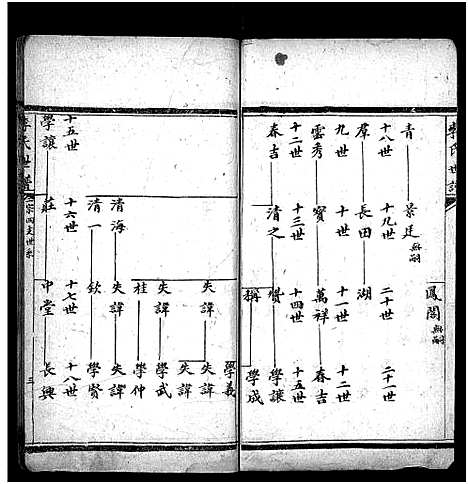 李氏世譜
鳳閣 無嗣
青 景廷 無嗣
十八世 十九世 二十世 二十一世
羣 長田 湖
九世 十世 十一世 十二世
雲秀 寶 萬祥 春吉
十二世 十三世 十四世 十五世
春吉 清之 學讓
稱 學成
學義
失諱 失諱
失諱
失諱 學武
桂 學仲
清海 失諱 失諱
清一 欽 學賢
十五世 十六世 十七世 十八世
學讓 莊 中堂 長興
李氏世譜 宗四支世系 三